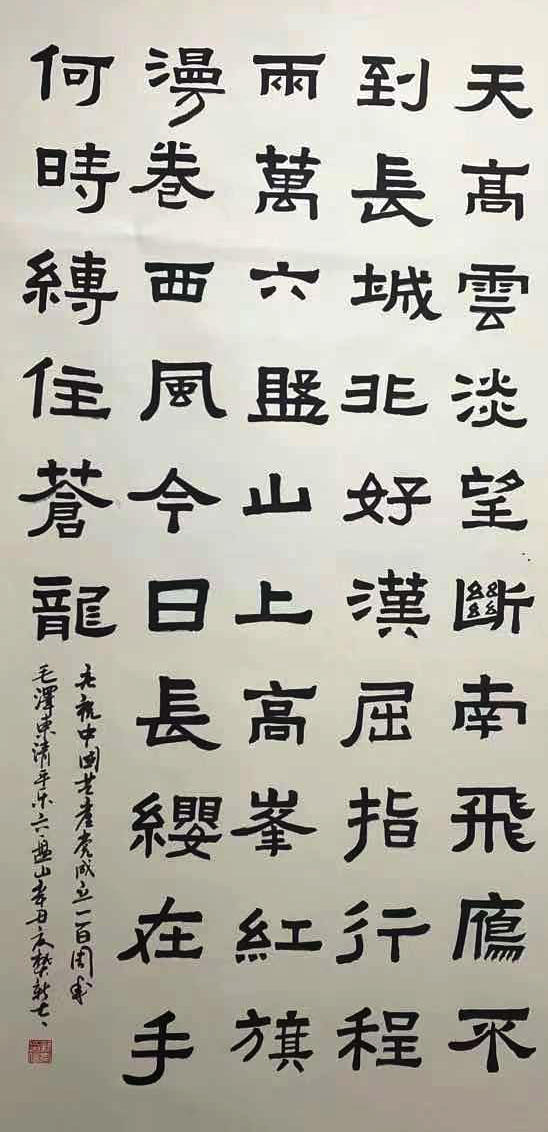 天髙雲淡望斷南飛鴈不
到長城非好漢屈指行程
兩萬六盤山上高峯紅旗
漫卷西風今日長纓在手
何時縛住蒼龍
慶祝中國共產党成立一百周年
毛澤東清平乐六盤山辛丑